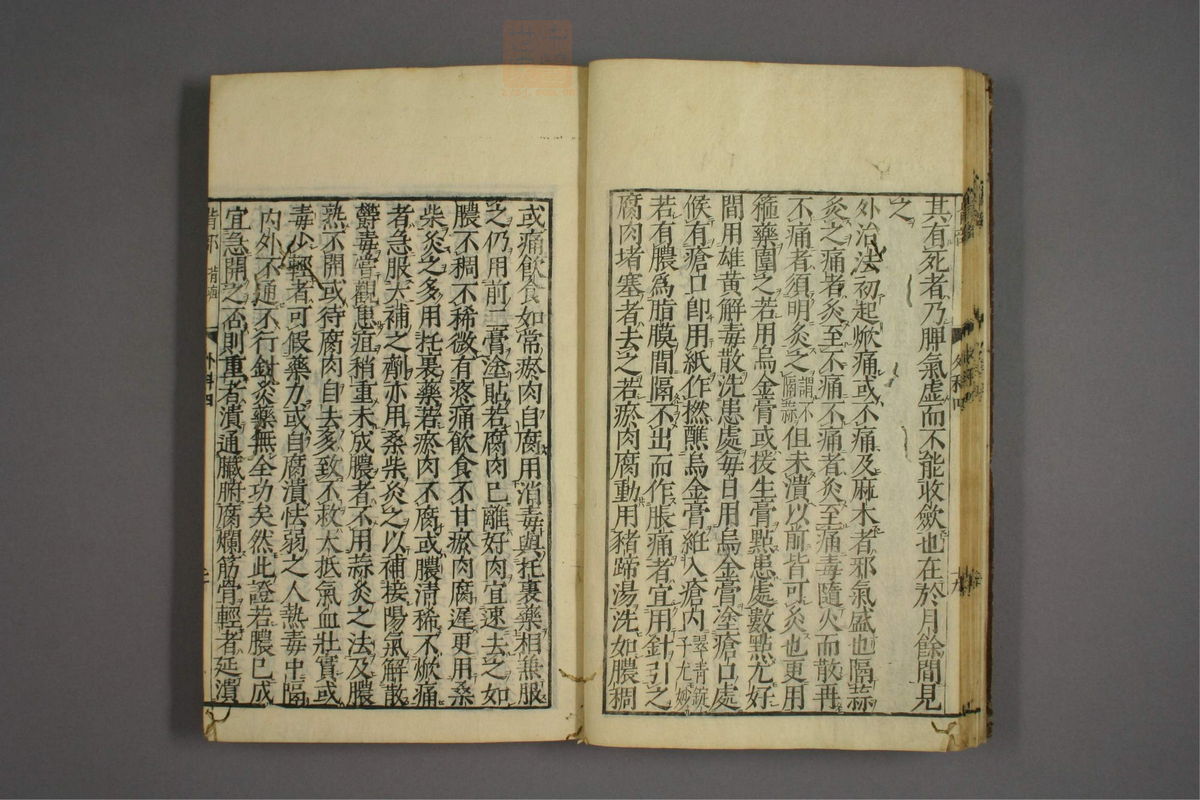 其有死者乃脾氣虛而不能收斂也在於月餘間見
之
外治法初起焮痛或不痛及麻木者邪氣盛也隔蒜
灸之痛者灸至不痛不痛者灸至痛毒隨火而散再
不痛者須明灸之謂不隔蒜但未潰以前皆可灸也更用
箍藥圍之若用烏金膏或援生膏點患處數點尤好
間用雄黃解毒散洗患處每日用烏金膏塗瘡口處
候有瘡口即用紙作撚蘸烏金膏紝入瘡內翠青錠子尤妙
若有膿爲脂膜間隔不出而作脹痛者宜用針引之
腐肉堵塞者去之若瘀肉腐動用豬蹄湯洗如膿稠
或痛飲食如常瘀肉自腐用消毒與托裏藥相兼服
之仍用前二膏塗貼若腐肉已離好肉宜速去之如
膿不稠不稀微有疼痛飲食不甘瘀肉腐遲更用桑
柴灸之多用托裏藥若瘀肉不腐或膿淸稀不焮痛
者急服大補之劑亦用桑柴灸之以補接陽氣解散
鬱毒嘗觀患疽稍重未成膿者不用蒜灸之法及膿
熟不開或待腐肉自去多致不救大抵氣血壯實或
毒少輕者可假藥力或自腐潰怯弱之人熱毒中隔
內外不通不行針灸藥無全功矣然此證若膿已成
宜急開之否則重者潰通臟腑腐爛筋骨輕者延潰
外科四